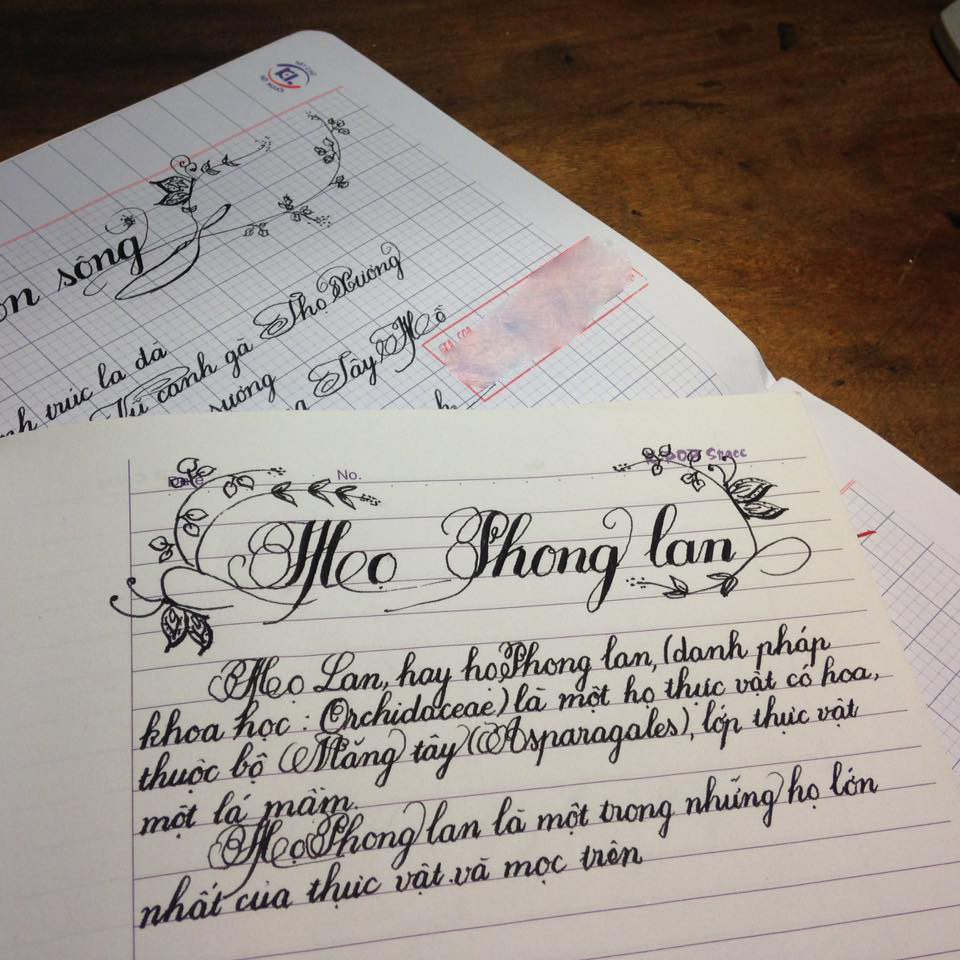 sông
trúc la đà
canh gà Thọ Xương
sương
Tây Hồ
Date
No.
Họ Phong lan
Họ Lan, hay họ Phong lan, (danh pháp
khoa học : Orchidaceae) là một họ thực vật có hoa,
thuộc bộ Măng tây (Asparagales), lớp thực vật
một lá mầm.
Họ Phong lan là một trong những họ lớn
nhất của thực vật và mọc trên